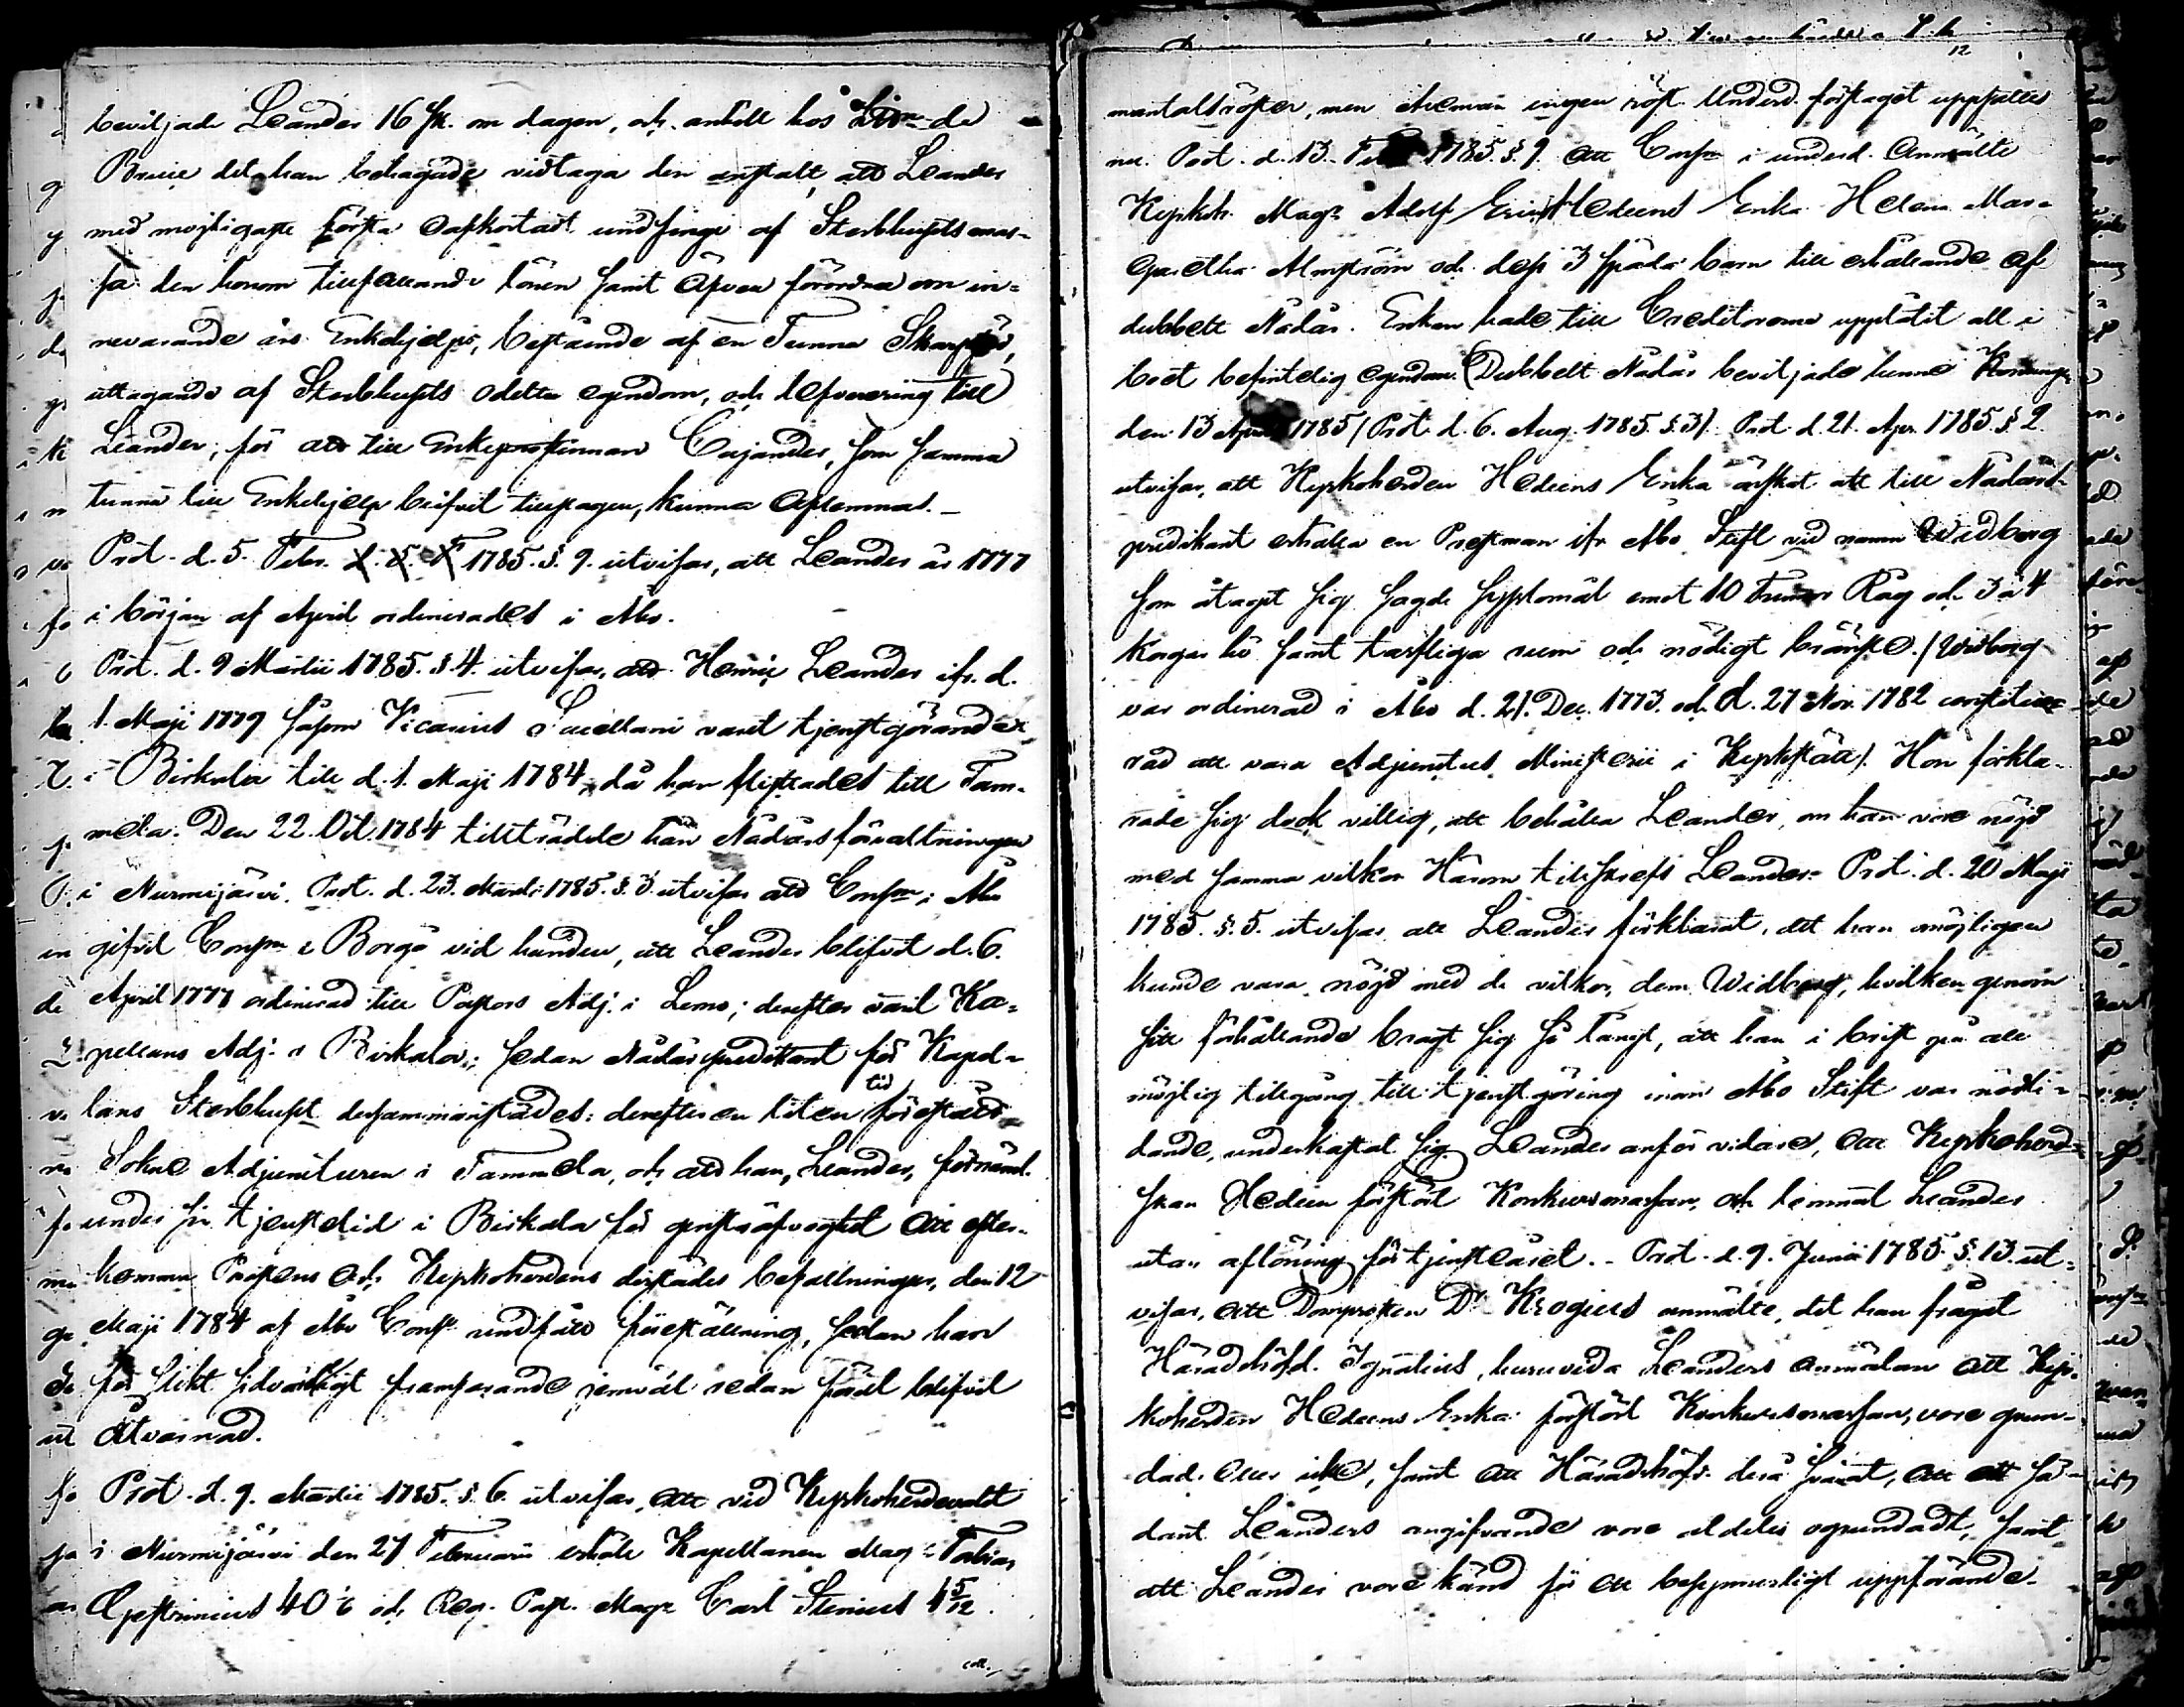 beviljade Leander 16 sk. om dagen, och anhöll hos
det han behagade vidtaga den anstalt, att Leander
med möjligaste första oafkortadt undfinge af Sterbhusets mas-
sa den honom tillfallande lönen samt äfven förordna om in-
nevarande års Enkehjelps, bestående af en Tunna
uttagande af Sterbhusets odelta egendom, och lefverering till
Leander, för att till Enkeprostinnan Cajander, som samma
tunna till Enkehjelp blifvit tillslagen, kunna aflemnas. _
Prot. d. 5. Febr. 1785. §. 9. utvisar, att Leander år 1777
i början af April ordinerades i Åbo.
Prot. d. 9 Martii 1785. §. 4. utvisar, att Henric Leander ifr. d.
1. Maji 1779 såsom Vicarius Sacellani varit tjenstgörande
i Birkala till d. 1. Maji 1784, då han flyttades till Tam-
mela. Den 22. Oct. 1784 tillträdde han Nådårsförvaltningen
i Nurmijärvi. Prot. d. 23. Martii 1785. §. 3. utvisar att Consm i Åbo
gifvit Consm i Borgå vid handen, att Leander blifvit d. 6.
April 1777 ordinerad till Pastors Adj. i Lemo; derefter varit Ka-
pellans Adj. i Birkala; sedan Nådårspredikant för Kapel-
lans Sterbhuset dersammanstädes; derefter en liten tid förestått
Sokne Adjuncturen i Tammela, och att han, Leander, förnäml.
under sin tjenstetid i Birkala för gensträfvoghet att efter-
komma Prostens och Kyrkoherdens derstädes befallningar, den 12
Maji 1784 af Åbo Cons. undfått föreställning, sedan han
för slikt sidvördigt framfarande jemväl redan förut blifvit
åtvarnad.
Prot. d. 9. Martii 1785. §. 6. utvisar, att vid Kyrkoherdevalet
i Nurmijärvi den 27 Februarii erhöll Kapellanen Mag. Tobias
40 och Reg. Past. Magr Carl Stenius 5/12.
coll.
12
mantalsröster, men Aleman ingen röst. Underd. förslaget uppsattes
nu. Prot. d. 13. 1785. §. 9. att Consm i underd. anmälte
Kyrkoh. Magr Adolf Eric Hedeens Enka Helena Mar-
garetha Almström och dess 3 späda barn till erhållande af
dubbelt Nådår. Enkan hade till Creditorerne upplåtit all i
boet befintelig egendom. (Dubbelt Nådår beviljade henne Konungen
den 13 1785 / Prot. d. 6. Aug. 1785. §. 3). Prot. d. 21. Apr. 1785. § 2.
utvisar, att Kyrkoherden Hedeens Enka äskat att till Nådårs-
predikant erhålla en Prestman ifr. Åbo Stift vid namn Widborg
som åtagit sig sagde sysslomål emot 10 Tunnor Råg och 3 à 4
kärgar hö samt tarfliga rum och nödigt bränsle. (Widborg
var ordinerad i Åbo d. 21. Dec. 1773. och d. 27 Nov. 1782 constitue-
rad att vara Adjunctus Ministerii i Kyrkslätt). Hon förkla-
rade sig dock villig, att behålla Leander, om han vore nöjd
med samma vilkor. Härom tillskrefs Leander. Prot. d. 20 Maji
1785. §. 5. utvisar att Leander förklarat, att han möjligen
kunde vara nöjd med de vilkor, dem Widborg, hvilken genom
sitt förhållande bragt sig så långt, att han i brist på all
möjlig tillgång till tjenstgöring inom Åbo Stift var nödli-
dande, underkastat sig. Leander anför vidare, att Kyrkoherd-
skan Hedeen förstört Konkursmassan, och lemnat Leander
utan aflöning för tjensteåret. - Prot. d. 9. Junii 1785. §. 13. ut-
visar, att Domprosten Dr Krogius anmälte, det han frågat
Häradshöfd. Ignatius, huruvida Leanders anmälan att Kyr-
koherden Hedeens Enka förstört Konkursmassan, vore grun-
dad. eller icke, samt att Häradshöfd. derå svarat, att så-
dant Leanders angifvande vore aldeles ogrundadt, samt
att Leander vore känd för ett besynnerligt uppförande.